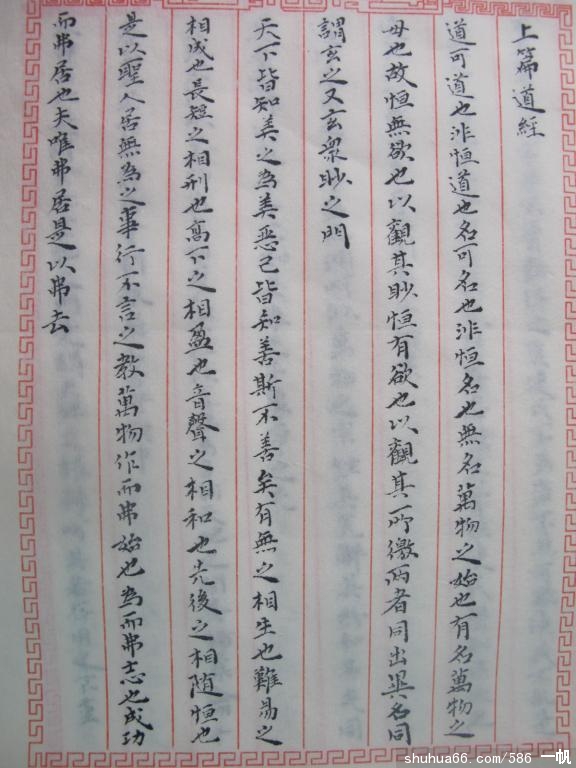 上篇道經
道可道也非恒道也名可名也非恒名也無名萬物之始也有名萬物之
母也故恒無欲也以觀其眇恒有欲也以觀其所徼两者同出異名同
謂玄之又玄衆眇之門
天下皆知美之為美惡已皆知善斯不善矣有無之相生也難易之
相成也長短之相刑也高下之相盈也音聲之相和也先後之相随恒也
是以聖人居無為之事行不言之教萬物作而弗始也為而弗志也成功
而弗居也夫唯弗居是以弗去
shuhua66.com/586 一帆